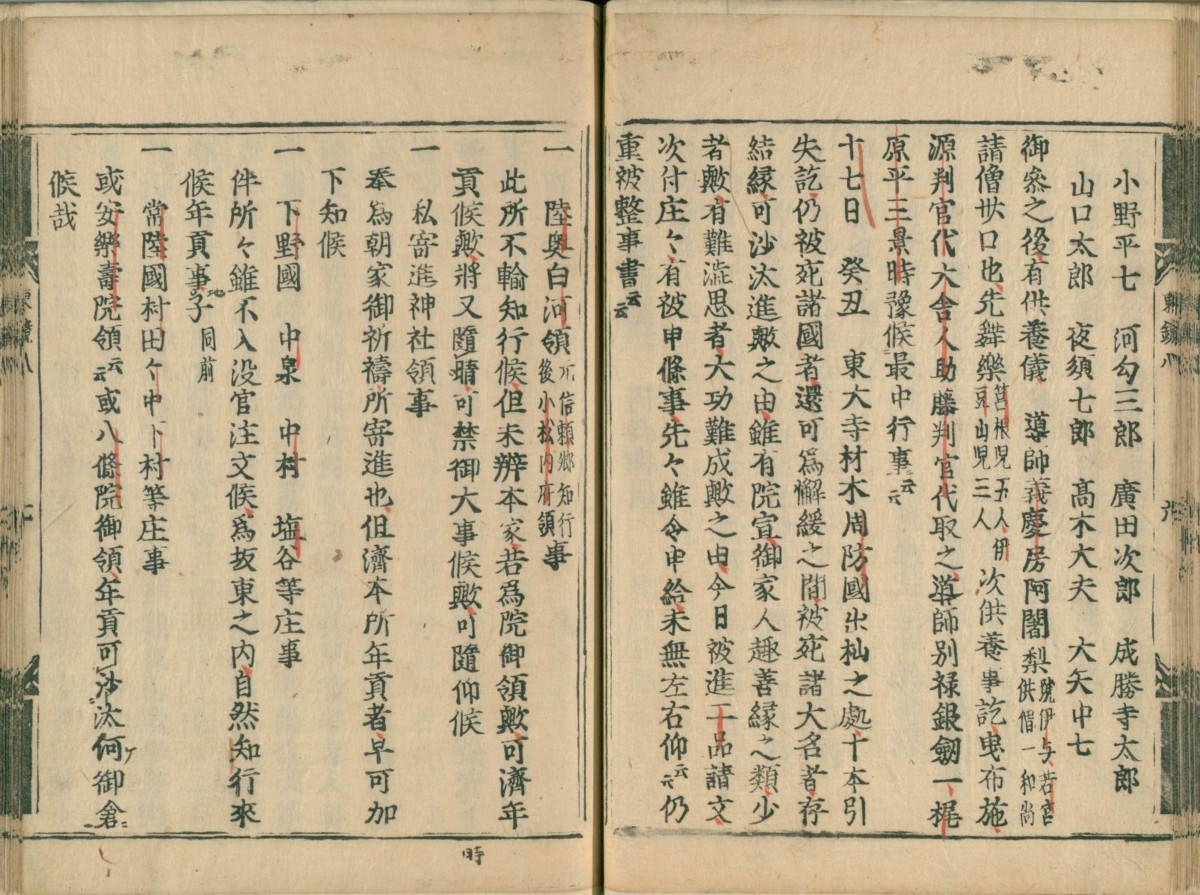 小野平七 河勾三郎 廣田次郎 成勝寺太郎
山口太郎 夜須七郎 髙木大夫 大矢中七
御叅之後有供養儀 導師義慶房阿闍梨號伊与若宮供僧一和尚
請僧丗口也先舞樂筥根児五人伊豆山児三人 次供養事訖曳布施
源判官代大舎人助藤判官代取之導師別禄銀劔一梶
原平三景時豫候最中行事云云
十七日 癸丑 東大寺材木周防國出杣之處十本引
失訖仍被充諸國者還可爲懈緩之間被充諸大名者存
結縁可沙汰進歟之由雖有院宣御家人趣善縁之類少
者歟有難澁思者大功難成歟之由今日被進二品請文
次付庄々有被申條事先々雖令申給未無左右仰云云仍
重被整事書云云
一 陸奥白河領元信頼郷知行後小松内府領事
此所不輸知行候但未辨本家若爲院御領歟可濟年
貢候歟將又隨晴可禁御大事候歟可隨仰候
一 私寄進神社領事
奉爲朝家御祈禱所寄進也但濟本所年貢者早可加
下知候
一 下野國 中泉 中村 塩谷等庄事
件所々雖不入没官注文候爲坂東之内自然知行來
候年貢事子同前
一 常陸國村田々中下村等庄事
或安樂壽院領云云或八條院御領年貢可沙汰何御倉
候哉
時